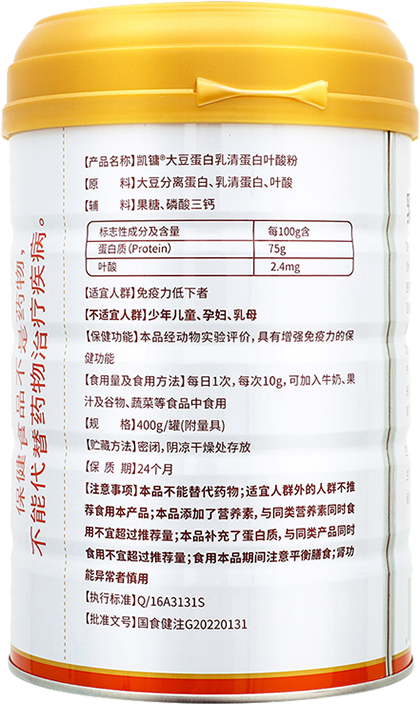 保健食品不是药物，
不能代替药物治疗疾病。
【产品名称】凯镛®大豆蛋白乳清蛋白叶酸粉
【原 料】大豆分离蛋白、乳清蛋白、叶酸
【辅 料】果糖、磷酸三钙
标志性成分及含量 每100g含
蛋白质（Protein） 75g
叶酸 2.4mg
【适宜人群】免疫力低下者
【不适宜人群】少年儿童、孕妇、乳母
【保健功能】本品经动物实验评价，具有增强免疫力的保
健功能
【食用量及食用方法】每日1次，每次10g，可加入牛奶、果
汁及谷物、蔬菜等食品中食用
【规 格】400g/罐（附量具）
【贮藏方法】密闭，阴凉干燥处存放
【保 质 期】24个月
【注意事项】本品不能替代药物；适宜人群外的人群不推
荐食用本产品；本品添加了营养素，与同类营养素同时食
用不宜超过推荐量；本品补充了蛋白质，与同类产品同时
食用不宜超过推荐量；食用本品期间注意平衡膳食；肾功
能异常者慎用
【执行标准】Q/16A3131S
【批准文号】国食健注G20220131